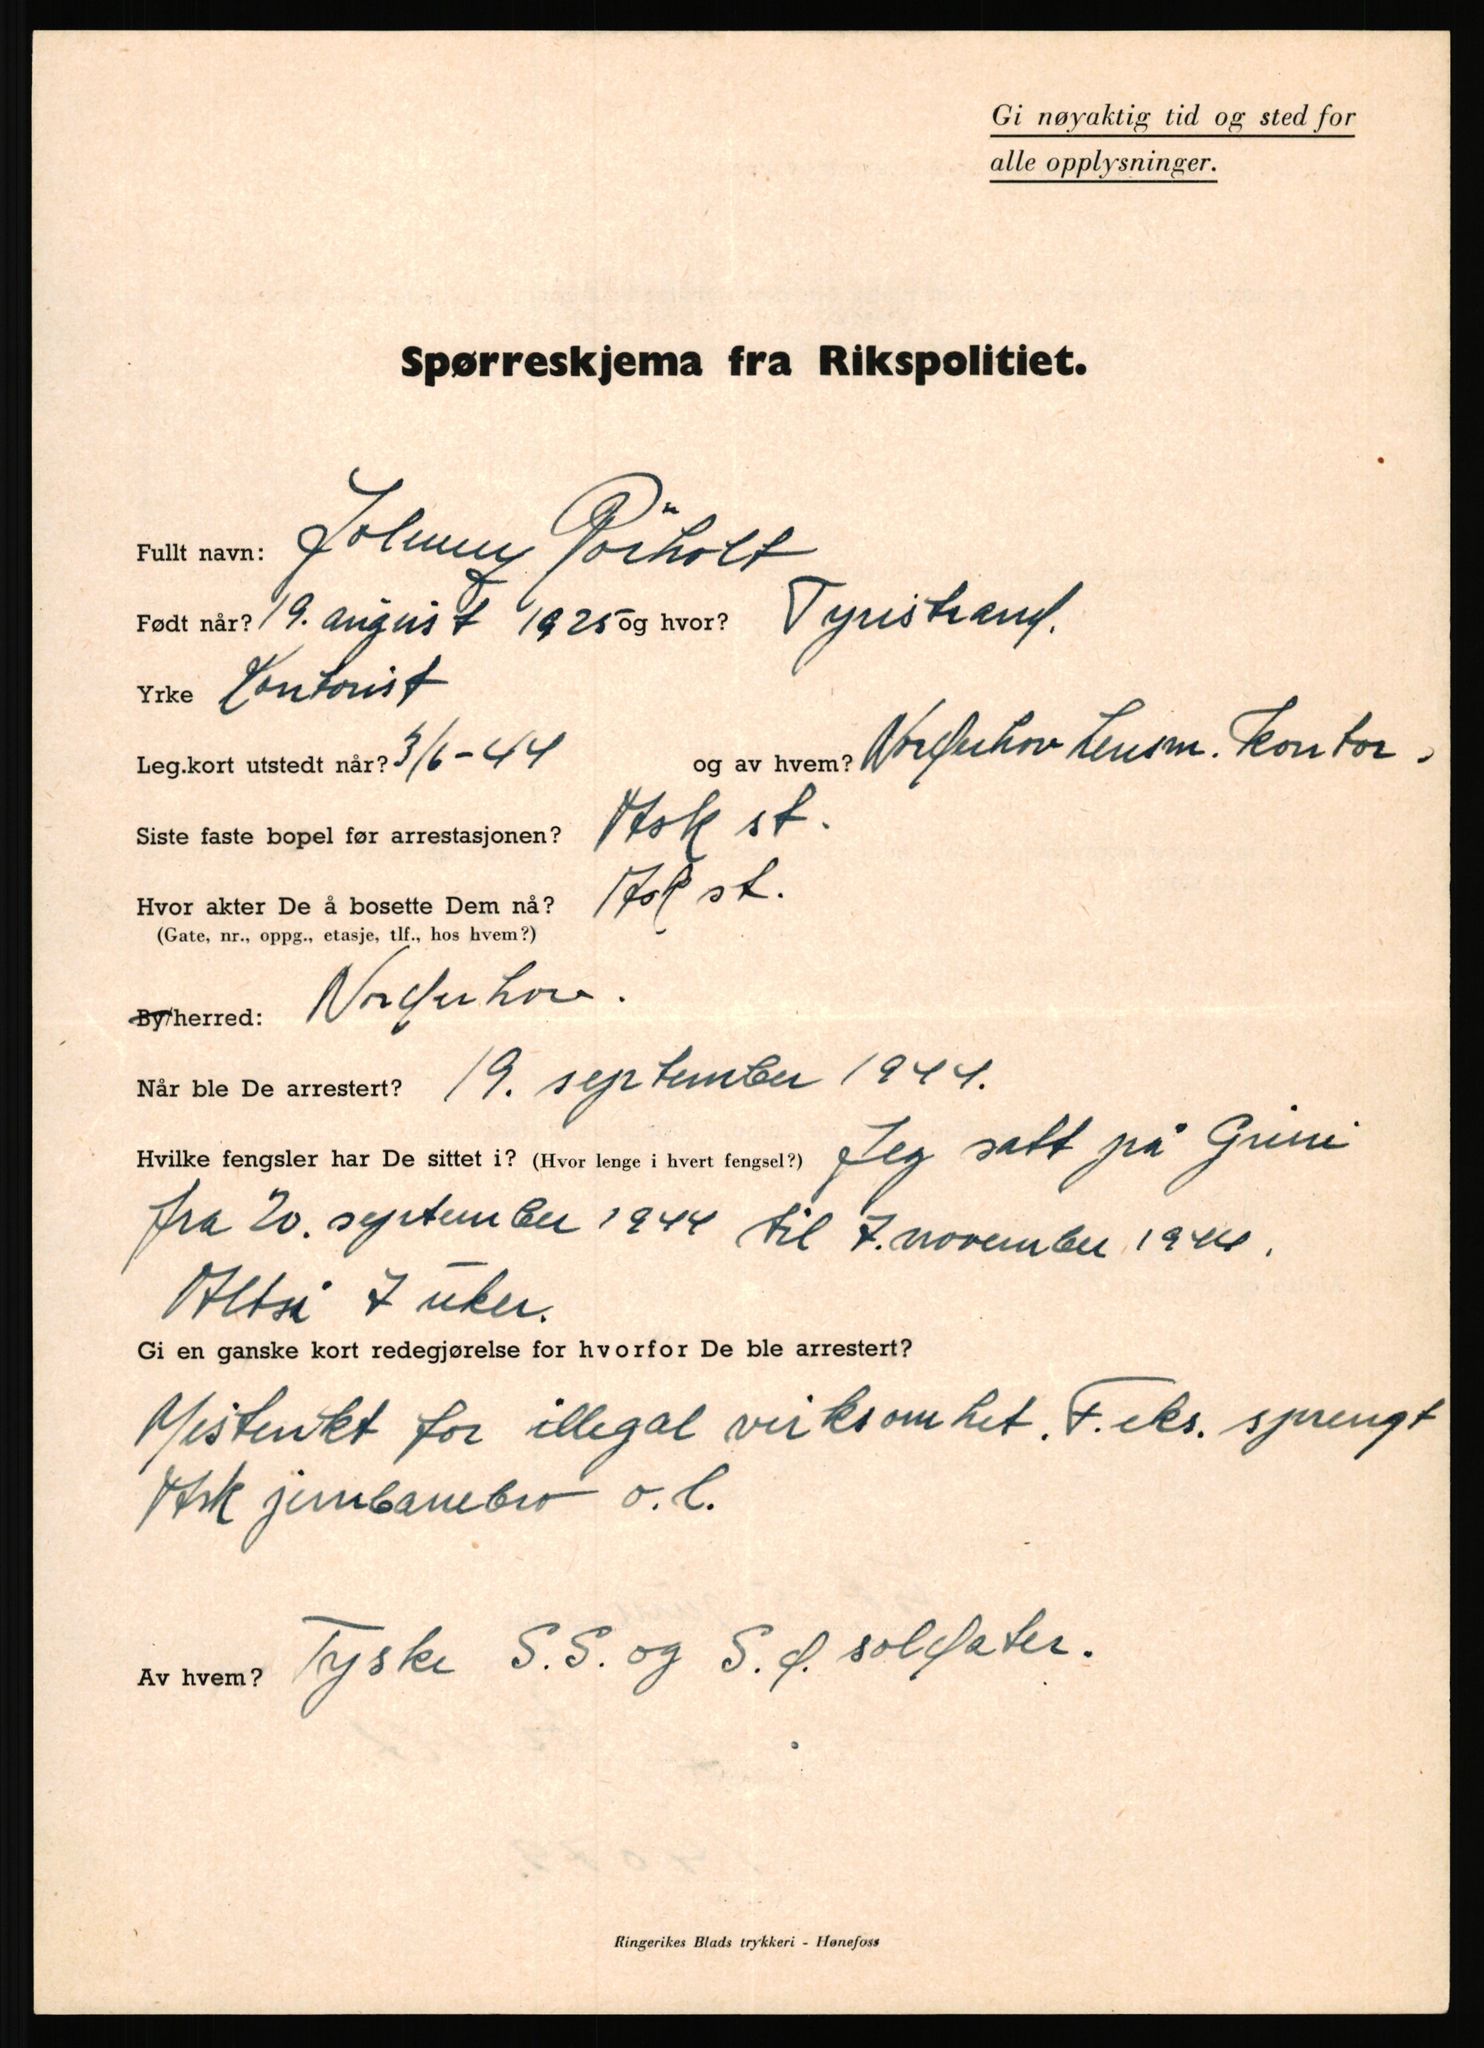 Gi nøyaktig tid og sted for
alle opplysninger.
Spørreskjema fra Rikspolitiet.
Fullt navn: Johnny Pörholt
Født når? 19. august 1925 og hvor? Tyristrand.
Yrke Kontorist
Leg.kort utstedt når? 3/6-44 og av hvem? Norderhov Lensm. kontor.
Siste faste bopel før arrestasjonen? Ask st.
Hvor akter De å bosette Dem nå? Ask st.
(Gate, nr., oppg., etasje, tlf., hos hvem?)
By/herred: Norderhov.
Når ble De arrestert? 19. september 1944.
Hvilke fengsler har De sittet i? (Hvor lenge i hvert fengsel?) Jeg satt på Grini
fra 20. september 1944 til 7. november 1944.
Altså 7 uker.
Gi en ganske kort redegjørelse for hvorfor De ble arrestert?
Mistenkt for illegal virksomhet. F. eks. sprengt
Ask jernbanebro o.l.
Av hvem? Tyske S.S. og S.d. soldater.
Ringerikes Blads trykkeri - Hønefoss